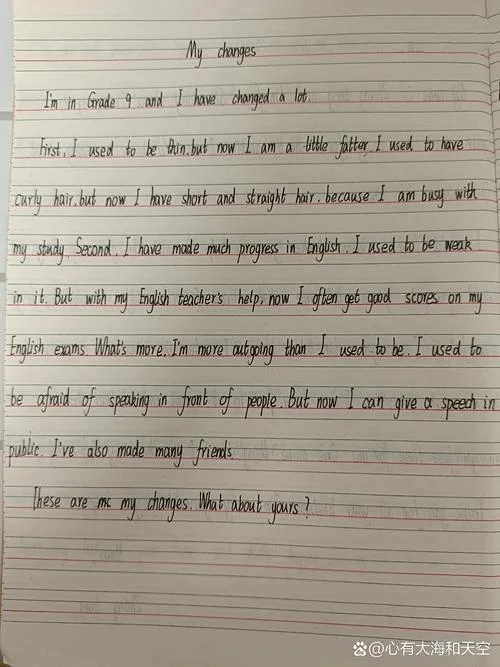 My changes
I'm in Grade 9 and I have changed a lot.
First, I used to be thin, but now I am a little fatter. I used to have
curly hair, but now I have short and straight hair, because I am busy with
my study. Second, I have made much progress in English. I used to be weak
in it. But with my English teacher's help, now I often get good scores on my
English exams. What's more, I'm more outgoing than I used to be. I used to
be afraid of speaking in front of people. But now I can give a speech in
public. I've also made many friends.
These are my changes. What about yours?
@心有大海和天空